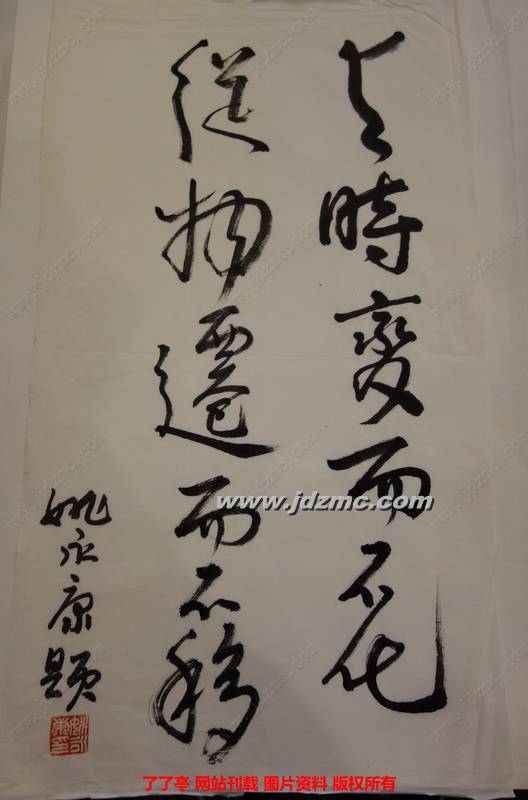 与時變而不化
從物遷而不移
姚永康題
www.jdzmc.com
了了亭 网站刊载 图片资料 版权所有